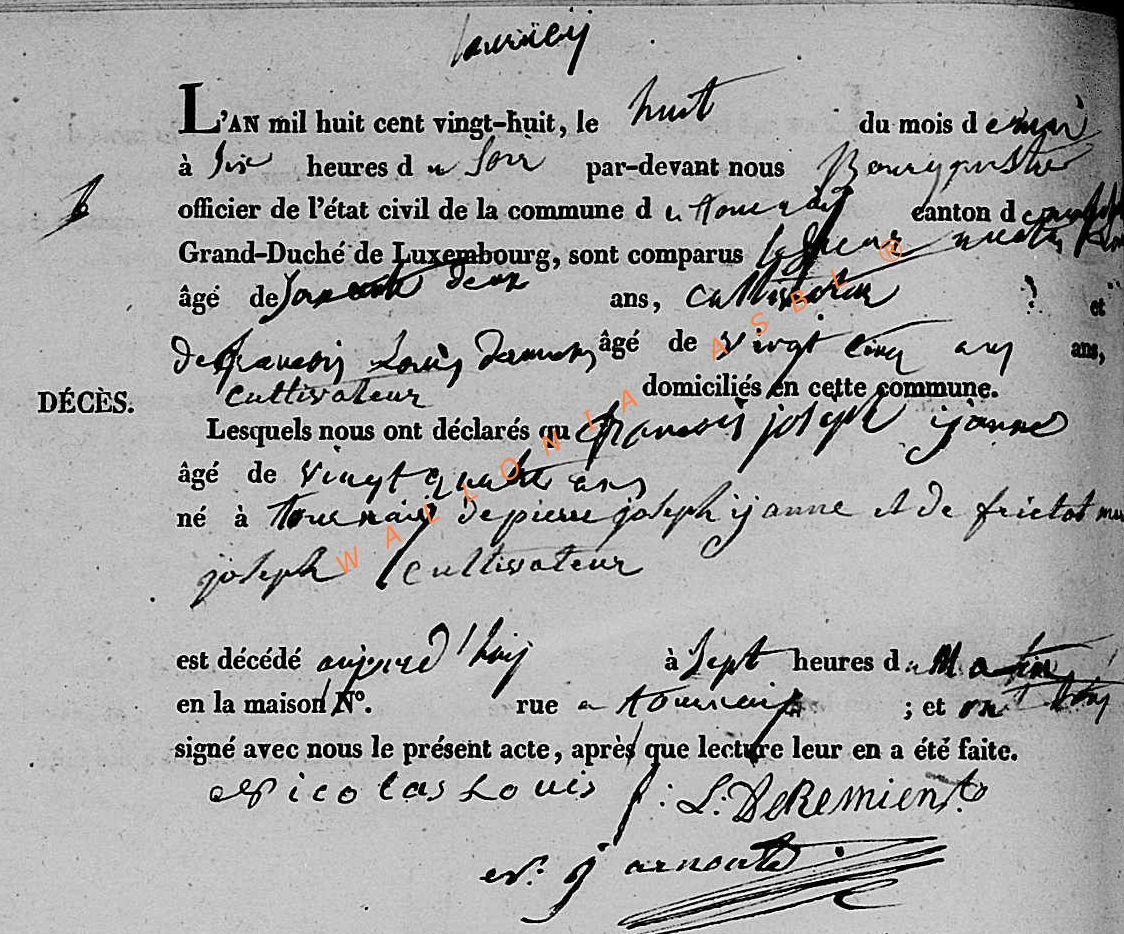 tournaij
L'AN mil huit cent vingt-huit, le huit du mois de mai
à six heures du Soir par-devant nous Bourgmestre
officier de l'état civil de la commune de tournaij canton de
Grand-Duché de Luxembourg, sont comparus le sieur nicolas
âgé de soixante deux ans, cultivateur et
de francois Louis âgé de vingt cinq ans ans,
cultivateur domiciliés en cette commune.
DÉCÈS.
Lesquels nous ont déclarés que francois joseph ijanne
âgé de vingt quatre ans
né à tournaij de pierre joseph ijanne et de frictot
joseph cultivateur
est décédé aujourd'huij à Sept heures du Matin
en la maison N°. rue a tournaij ; et ont
signé avec nous le présent acte, après que lecture leur en a été faite.
Nicolas Louis f: L: DeRemiens
N. j arnould
WALLONIA ASBL ®